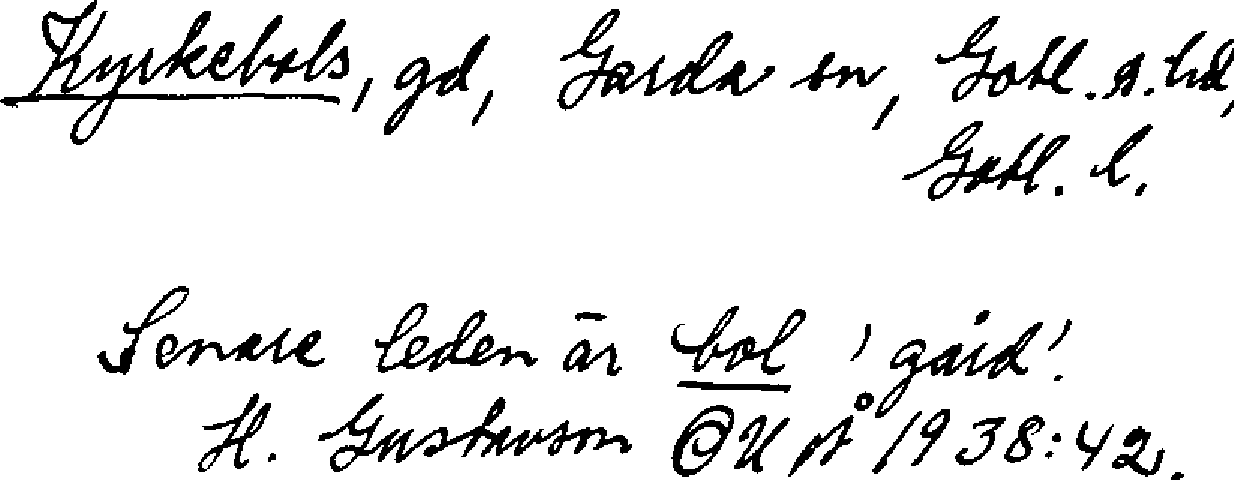 Kyrkebols, gd, Garda sn, Gotl. s. hd,
Gotl. l.
Senare leden är bol 'gård'.
H. Gustavson GU på 1938:42.